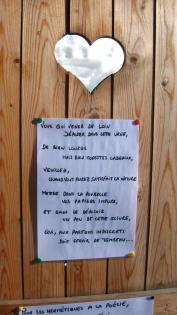 VOUS QUI VENEZ DE LOIN
DÉPOSER DANS CETTE URNE,
DE BIEN LOURDS
MAIS BIEN MODESTES CADEAUX,
VEUILLEZ,
QUAND VOUS AUREZ SATISFAIT LA NATURE
METTRE DANS LA POUBELLE
VOS PAPIERS IMPURS,
ET DANS CE
UN PEU DE CETTE SCIURE,
QUI, AUX PARFUMS INDISCRETS
DOIT SERVIR DE TOMBEAU...
POUR LES HERMÉTIQUES A LA POÉSIE,